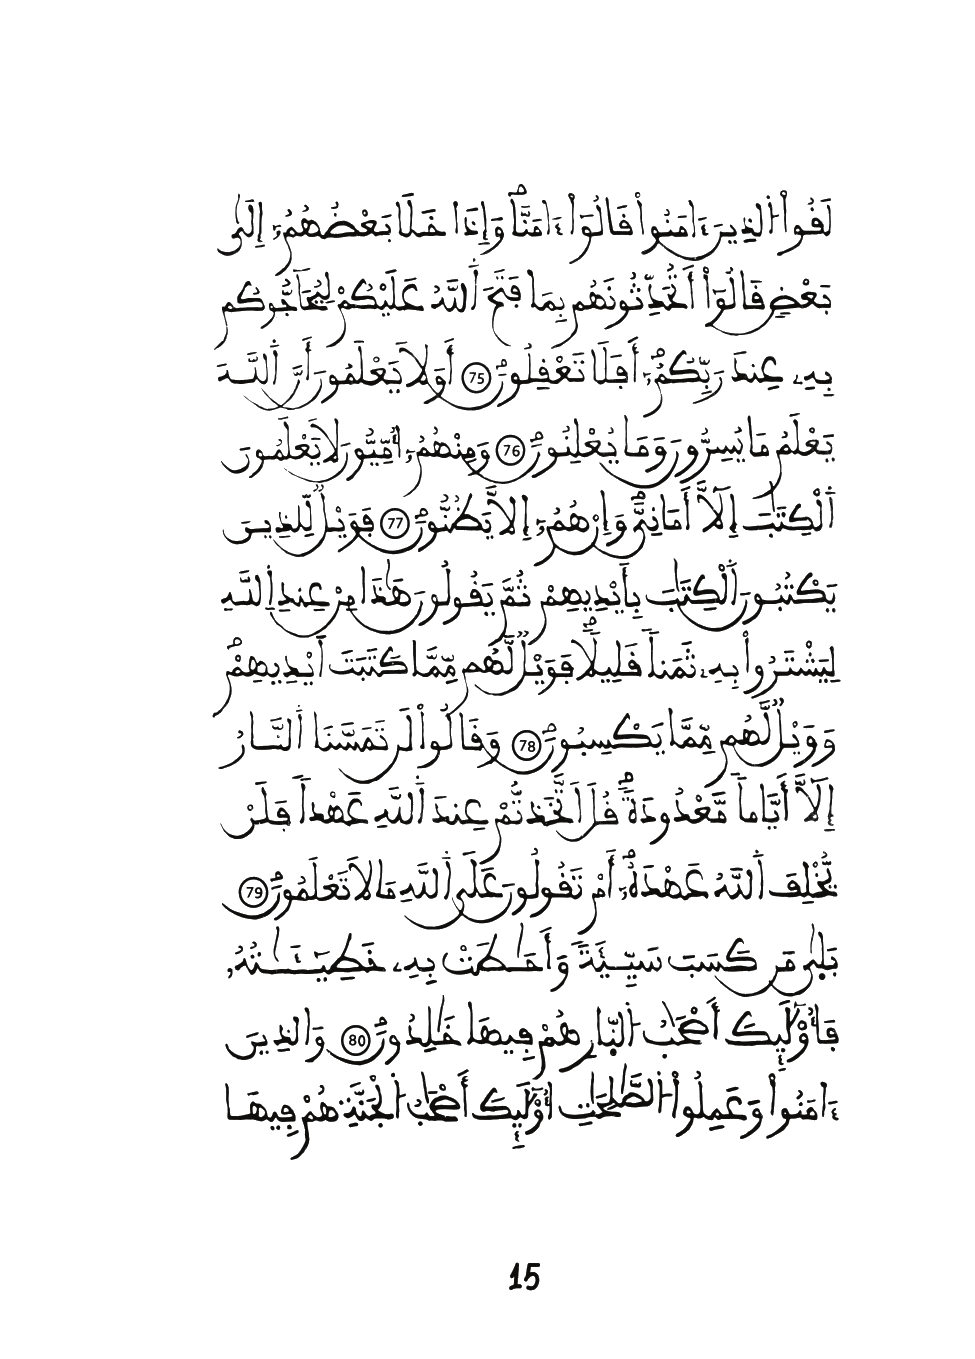 لَقُوا۟ اُ۬لذِينَ ءَامَنُوا۟ قَالُوٓا۟ ءَامَنَّاۖ وَإِذَا خَلَا بَعْضُهُمُۥٓ إِلَىٰ
بَعْضٍ قَالُوٓا۟ أَتُحَدِّثُونَهُم بِمَا فَتَحَ اَ۬للَّهُ عَلَيْكُمْ لِيُحَآجُّوكُم
بِهِۦ عِندَ رَبِّكُمُۥٓۖ أَفَلَا تَعْقِلُونَۖ 75 أَوَلَا يَعْلَمُونَ أَنَّ اَ۬للَّهَ
يَعْلَمُ مَا يُسِرُّونَ وَمَا يُعْلِنُونَۖ 76 وَمِنْهُمُۥٓ أُمِّيُّونَ لَا يَعْلَمُونَ
اَ۬لْكِتَٰبَ إِلَّآ أَمَانِيَّۖ وَإِنْ هُمُۥٓ إِلَّا يَظُنُّونَۖ 77 فَوَيْلٌ لِّلذِينَ
يَكْتُبُونَ اَ۬لْكِتَٰبَ بِأَيْدِيهِمْ ثُمَّ يَقُولُونَ هَٰذَا مِنْ عِندِ اِ۬للَّهِ
لِيَشْتَرُوا۟ بِهِۦ ثَمَناً قَلِيلاًۖ فَوَيْلٌ لَّهُم مِّمَّا كَتَبَتَ اَيْدِيهِمْۖ
وَوَيْلٌ لَّهُم مِّمَّا يَكْسِبُونَۖ 78 وَقَالُوا۟ لَن تَمَسَّنَا اَ۬لنَّارُ
إِلَّآ أَيَّاماً مَّعْدُودَةًۖ قُلَ اَتَّخَذتُّمْ عِندَ اَ۬للَّهِ عَهْداً فَلَنْ
يُّخْلِفَ اَ۬للَّهُ عَهْدَهُۥٓۖ أَمْ تَقُولُونَ عَلَى اَ۬للَّهِ مَا لَا تَعْلَمُونَۖ 79
بَلَىٰ مَن كَسَبَ سَيِّئَةً وَأَحَٰطَتْ بِهِۦ خَطِيٓـَٰٔتُهُۥ
فَأُو۟لَٰٓئِكَ أَصْحَٰبُ اُ۬لنّ۪ارِ هُمْ فِيهَا خَٰلِدُونَۖ 80 وَالذِينَ
ءَامَنُوا۟ وَعَمِلُوا۟ اُ۬لصَّٰلِحَٰتِ أُو۟لَٰٓئِكَ أَصْحَٰبُ اُ۬لْجَنَّةِ هُمْ فِيهَا
15